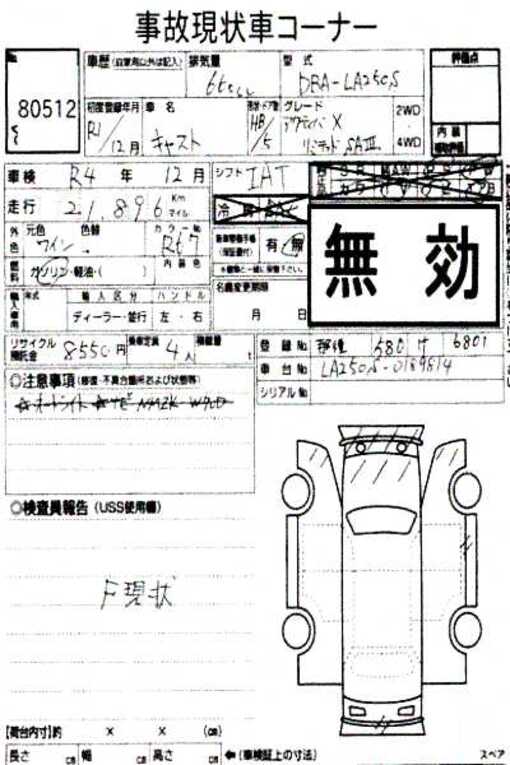 事故現状車コーナー
No 80512
車歴 (自家用以外は記入) 排気量 660cc 型式 DBA-LA250S 評価点
初度登録年月 R1/12月 車名 キャスト 形状・ドア数 HB/5 グレード アクティバ X リミテッド SAⅢ 2WD・4WD 内装
車検 R4年 12月 シフト IAT
走行 21,896 Km マイル 冷房
外色 元色 ワイン 色替 カラーNo R67 新車整備手帳 (保証書付) 有・無
燃料 ガソリン・軽油・( ) 内装色 ※車検と一緒に保管下さい。
無効
名義変更期限 月 日
輸入車用 年式 輸入区分 ハンドル
ディーラー・並行 左・右
リサイクル預託金 8550円 乗車定員 4人 積載量 t 登録No 580 け 6801
車台No LA250S-0189814
シリアルNo
◎注意事項 (修復・不具合箇所および状態等)
オートライト
◎検査員報告 (USS使用欄)
F現状
【荷台内寸】約 × × (cm)
長さ cm 幅 cm 高さ cm ←(車検証上の寸法) スペア